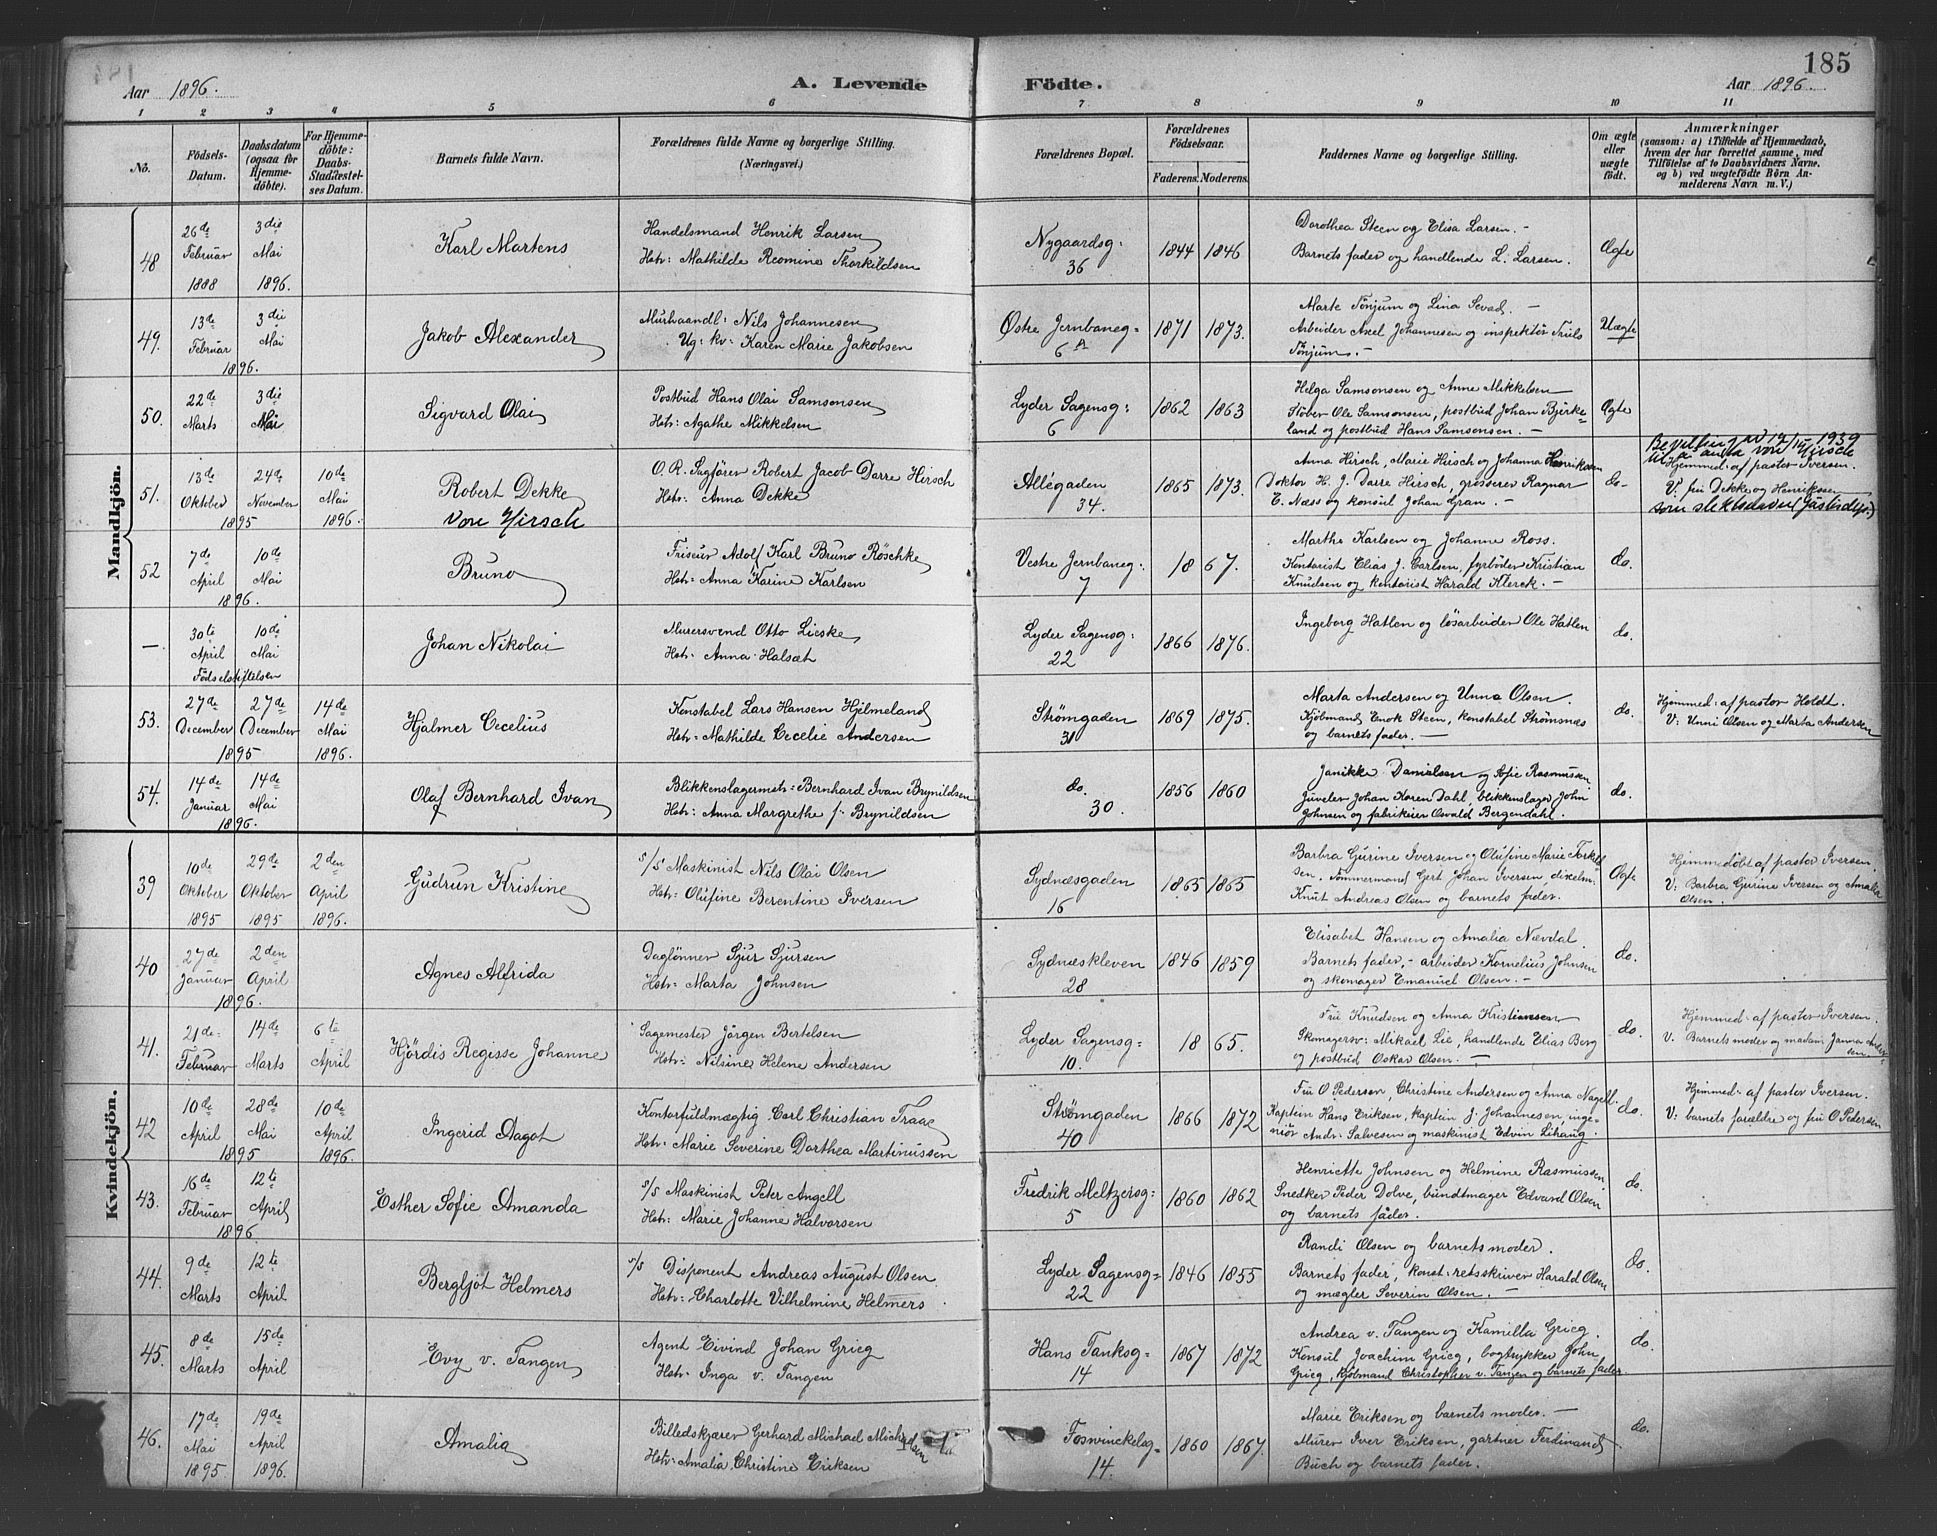 185
Aar 1896.
A. Levende Födte.
Aar 1896.
1 2 3 4 5 6 7 8 9 10 11
No.
Födsels-Datum.
Daabsdatum (ogsaa for Hjemmedöbte).
For Hjemmedöbte: Daabs-Stadfæstelses Datum.
Barnets fulde Navn.
Forældrenes fulde Navne og borgerlige Stilling. (Næringsvei.)
Forældrenes Bopæl.
Forældrenes Födselsaar.
Faderens. Moderens.
Faddernes Navne og borgerlige Stilling.
Om ægte eller uægte födt.
Anmærkninger (saasom: a) i Tilfælde af Hjemmedaab, hvem der har forrettet samme, med Tilföielse af to Daabsvidners Navne, og b) ved uægtefödte Börn Anmelderens Navn m. V.)
Mandkjön.
48 26de Februar 1888 3die Mai 1896.
Karl Martens
Handelsmand Henrik Larsen
Hstr: Mathilde Reomine Thorkildsen
Nygaardsg: 36
1844 1846
Dorothea Steen og Elisa Larsen. -
Barnets fader og handlende L. Larsen.
Ægte
49. 13de Februar 3die Mai 1896.
Jakob Alexander
Murhaandl: Nils Johannesen
Ug: kv: Karen Marie Jakobsen
Østre Jernbaneg= 6A
1871 1873.
Marte Tönjum og Lina Sevad. -
Arbeider Axel Johannesen og inspektör Truls
Tönjum. -
Uægte
50. 22de Marts 3die Mai
Sigvard Olai
Postbud Hans Olai Samsonsen
Hstr: Agathe Mikkelsen
Lyder Sagensg: 6
1862 1863
Helga Samsonsen og Anne Mikkelsen
Stöber Ole Samsonsen, postbud Johan Bjerke=
land og postbud Hans Samsonsen. -
Ægte
51. 13de Oktober 24de November 1895 10de Mai 1896.
Robert Dekke
von Hirsch
O.R. Sagförer Robert Jacob Darre Hirsch
Hstr: Anna Dekke
Allégaden 34.
1865 1873.
Anna Hirsch, Marie Hirsch og Johanna Henriksen
Doktor H. J. Darre Hirsch, grosserer Ragnar
E. Næss og konsul Johan Gran. -
do-
1939
von Hirsch
Hjemmed: af pastor Iversen.
V: fru Dekke og Henriksen
som slektsnavn (Justisdep.)
52 7de April 10de Mai 1896.
Bruno
Friseur Adolf Karl Bruno Röschke
Hstr: Anna Karine Karlsen
Vestre Jernbaneg: 7
1867.
Marthe Karlsen og Johanne Ross.
Kontorist Elias J. Carlsen, fyrböder Kristian
Knudsen og kontorist Harald Klerck. -
do.
— 30te April 10de Mai
Födselsstiftelsen
Johan Nikolai
Murersvend Otto Lieske
Hstr: Anna Halsæt
Lyder Sagensg: 22
1866 1876.
Ingeborg Hatlen og lösarbeider Ole Hatlen
do.
53. 27de December 27de December 1895 14de Mai 1896.
Hjalmer Cecelius
Konstabel Lars Hansen Hjelmeland
Hstr: Mathilde Cecelie Andersen
Strömgaden 31
1869 1875.
Marta Andersen og Unna Olsen.
Kjöbmand Enok Steen, konstabel Strömsnæs
og barnets fader. -
do.
Hjemmed: af pastor Holdt.
V: Unni Olsen og Marta Andersen
54. 14de Januar 14de Mai 1896.
Olaf Bernhard Ivan
Blikkenslagermstr: Bernhard Ivan Brynildsen
Hstr: Anna Margrethe f. Brynildsen
do. 30.
1856 1860
Janikke Danielsen og Sofie Rasmussen
Juveler Johan Koren Dahl, blikkenslager John
Johnsen og fabrikeier Osvald Bergendahl.
do.
Kvindekjön.
39 10de Oktober 1895 29de Oktober 1895 2den April 1896.
Gudrun Kristine
S/S Maskinist Nils Olai Olsen
Hstr: Olufine Berentine Iversen
Sydnæsgaden 16
1865 1865
Barbra Gurine Iversen og Olufine Marie Torkel
sen. Tömmermand Gert Johan Iversen, dixelm.
Knut Andreas Olsen og barnets fader.
Ægte
Hjemmedöbt af pastor Iversen.
V: Barbra Gurine Iversen og Amalia
Olsen.
40 27de Januar 2den April 1896.
Agnes Alfrida
Daglönner Sjur Sjursen
Hstr: Marta Johnsen
Sydnæskleven 28
1846 1859
Elisabet Hansen og Amalia Nævdal.
Barnets fader, - arbeider Kornelius Johnsen
og skomager Emanuel Olsen. -
do.
41. 21de Februar 14de Marts 6te April
Hjördis Regisse Johanne
Sagemester Jörgen Bertelsen
Hstr: Nilsine Helene Andersen
Lyder Sagensg= 10.
1865.
Fru Knudsen og Anna Kristiansen
Skomagersv: Mikael Lie, handlende Elias Berg
og postbud Oskar Olsen. -
do.
Hjemmed: af pastor Iversen.
V: Barnets moder og madam Janna Ander
sen
42 10de April 28de Mai 1895 10de April 1896.
Ingerid Dagot
Kontorfuldmægtig Carl Christian Traae
Hstr: Marie Severine Dorthea Martinussen
Strömgaden 40
1866 1872
Fru O Pedersen, Christine Andersen og Anna Nagell
Kaptein Hans Eriksen, kaptein J. Johannesen, inge-
niör Andr: Salvesen og maskinist Edvin Lihaug.
do.
Hjemmed: af pastor Iversen.
V: barnets forældre og fru O Pedersen
43. 16de Februar 12te April 1896.
Esther Sofie Amanda
S/S Maskinist Peter Angell
Hstr: Marie Johanne Halvorsen
Fredrik Meltzersg: 5
1860 1862
Henriette Johnsen og Helmine Rasmussen
Snedker Peder Dolve, bundtmager Edvard Olsen
og barnets fader.
do.
44. 9de Marts 12te April
Bergljot Helmers
S/S Disponent Andreas August Olsen
Hstr: Charlotte Vilhelmine Helmers
Lyder Sagensg= 22
1846 1855
Randi Olsen og barnets moder.
Barnets fader, konst: retsskriver Harald Olsen
og mægler Severin Olsen. -
do.
45. 8de Marts 15de April
Evy v. Tangen
Agent Eivind Johan Grieg
Hstr: Inga v. Tangen
Hans Tanksg= 14
1867 1872
Andrea v. Tangen og Kamilla Grieg.
Konsul Joachim Grieg, bogtrykker John
Grieg, kjöbmand Christopher v. Tangen og barnets fader.
do.
46. 17de Mai 1895 19de April 1896.
Amalia
Billedskjærer Gerhard Michael Michaelsen
Hstr: Amalia Christine Eriksen
Foswinckelsg= 14.
1860 1867.
Marie Eriksen og barnets moder. -
Murer Iver Eriksen, gartner Ferdinand
Buch og barnets fader.
do.